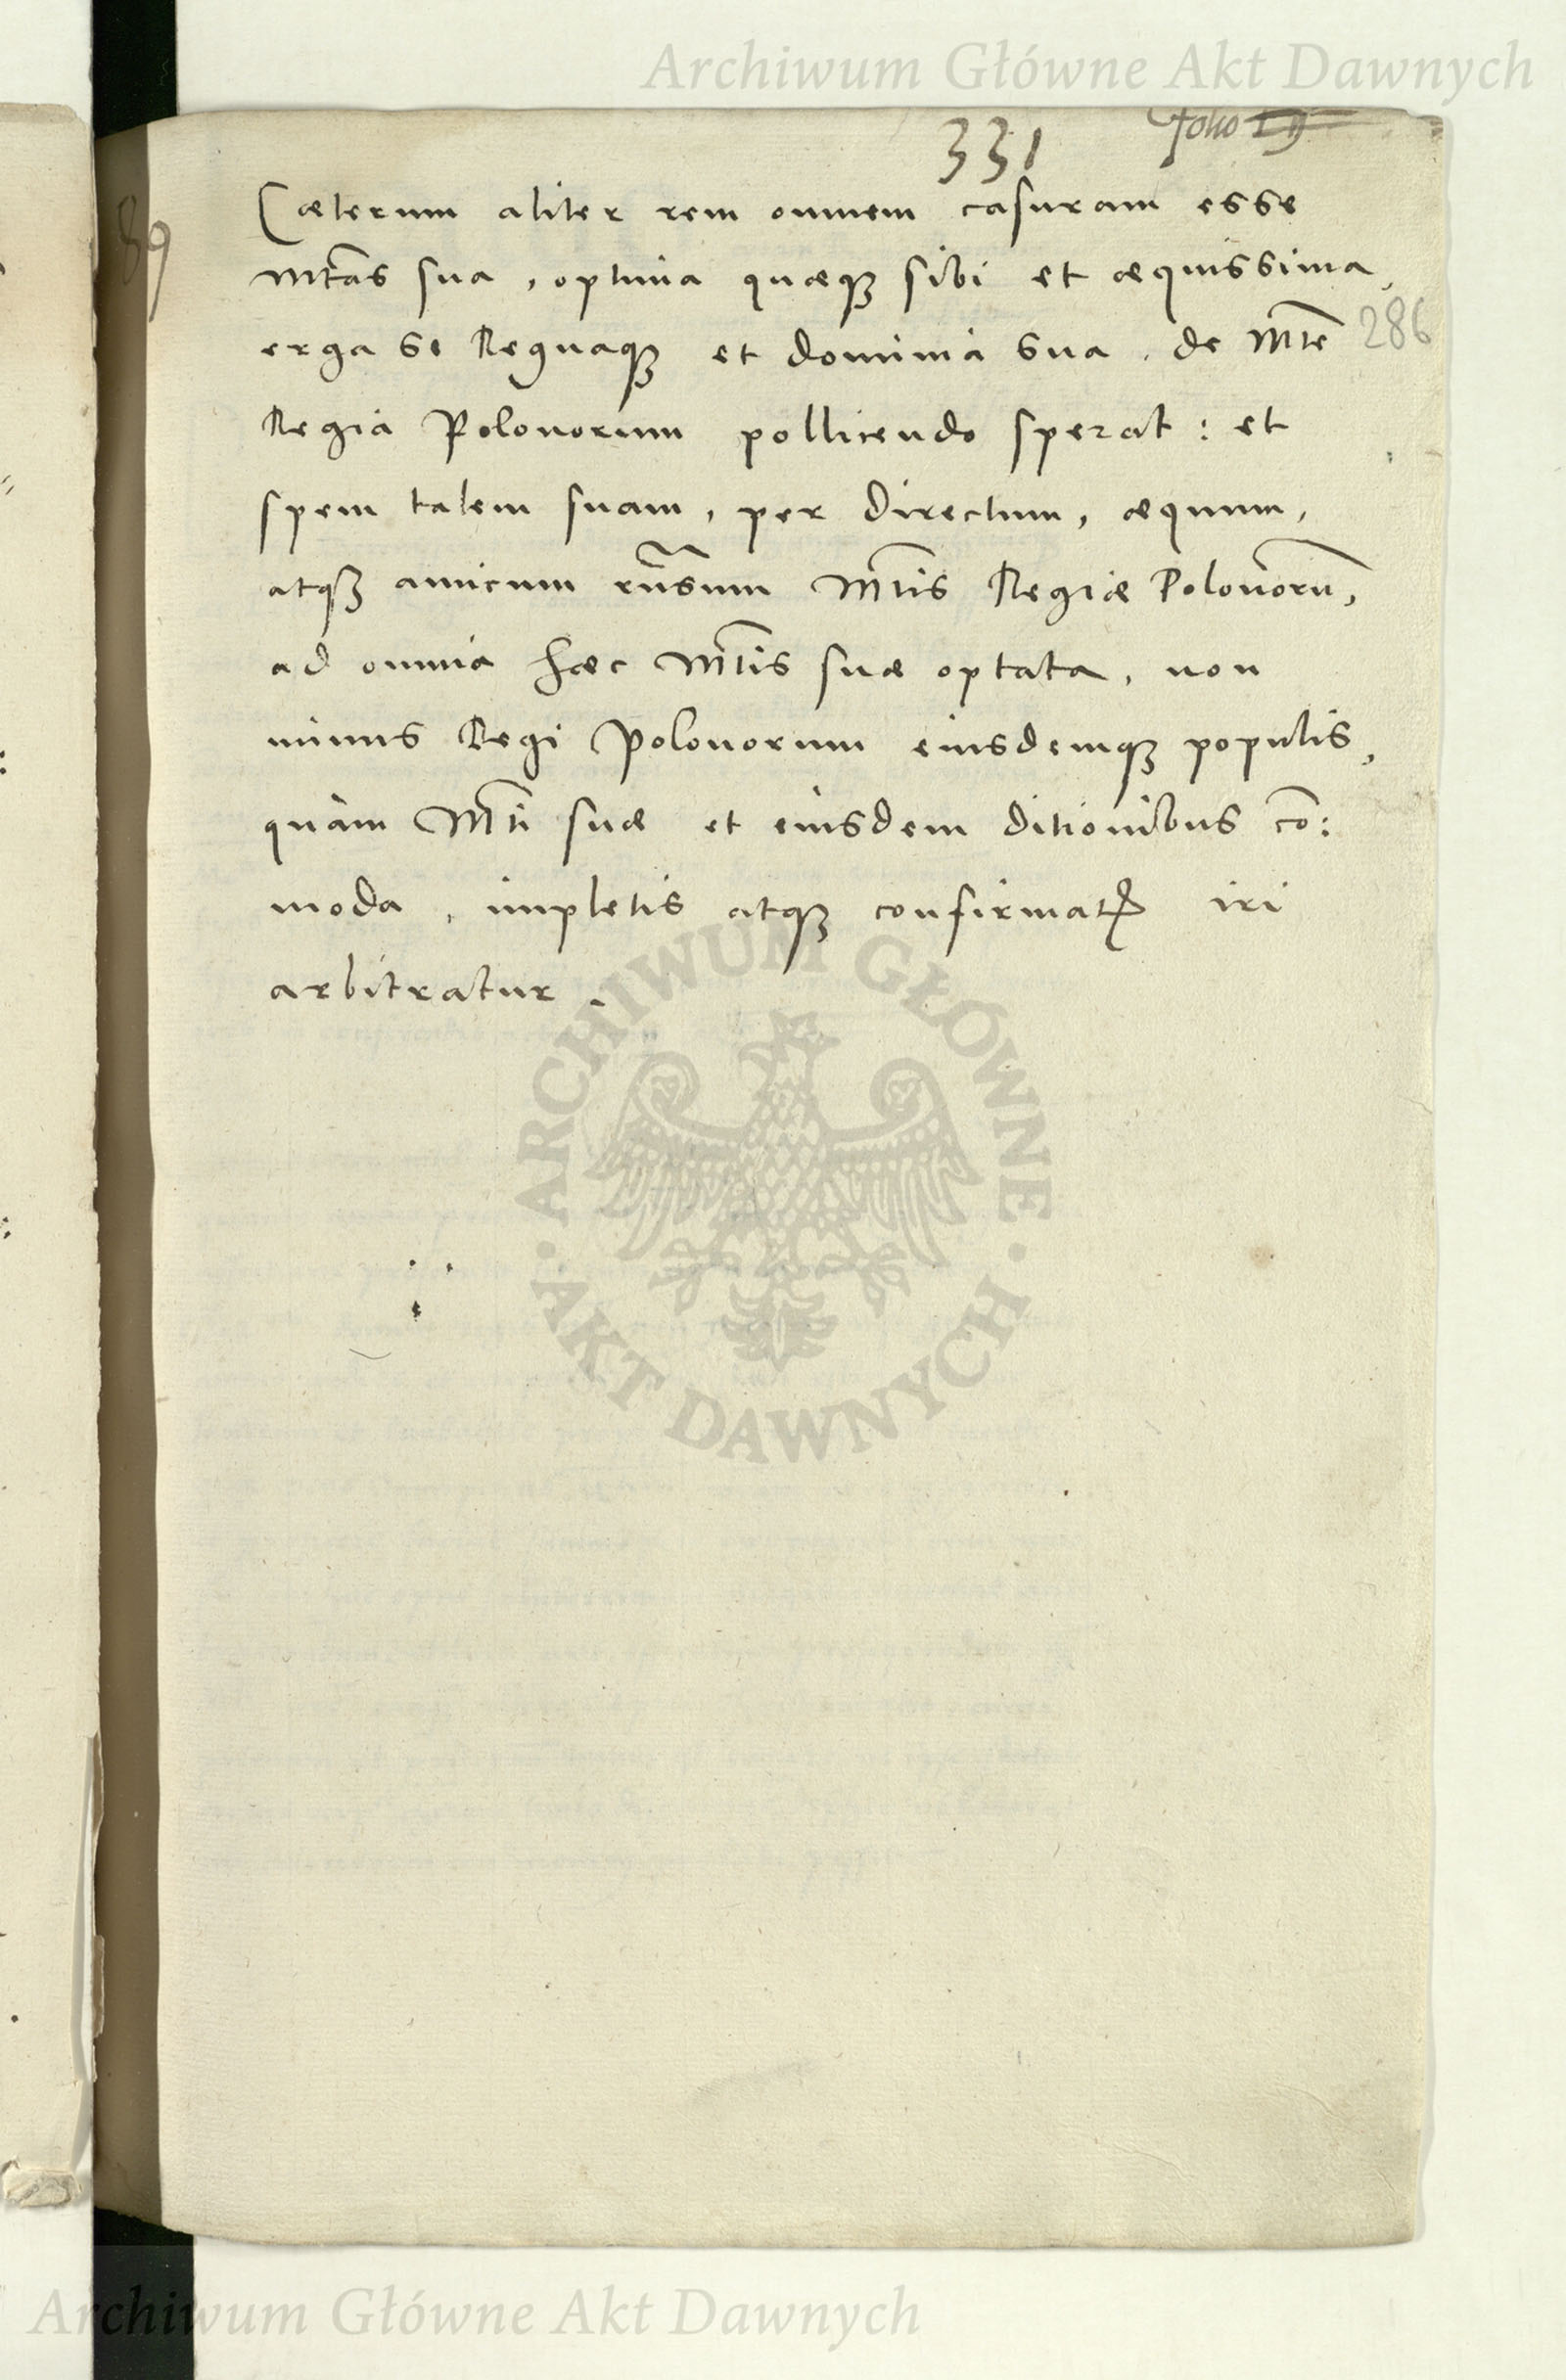 Archiwum Główne Akt Dawnych
331 folio
89
Cæterum aliter rem omnem casuram esse
Mtas sua, optima quæq3 sibi et æquissima,
erga se Regnaq3 et dominia sua, de Mte
286
Regia Polonorum pollicendo sperat: et
spem talem suam, per directum, æquum,
atq3 amicum rñsum Mtis Regiæ Polonorũ,
ad omnia hæc Mtis suæ optata, non
minus Regi Polonorum eiusdemq3 populis,
quàm Mti suæ et eiusdem ditionibus cõ:
moda, impletis atq3 confirmatꝭ iri
arbitratur.
ARCHIWUM GŁÓWNE · AKT DAWNYCH ·
Archiwum Główne Akt Dawnych